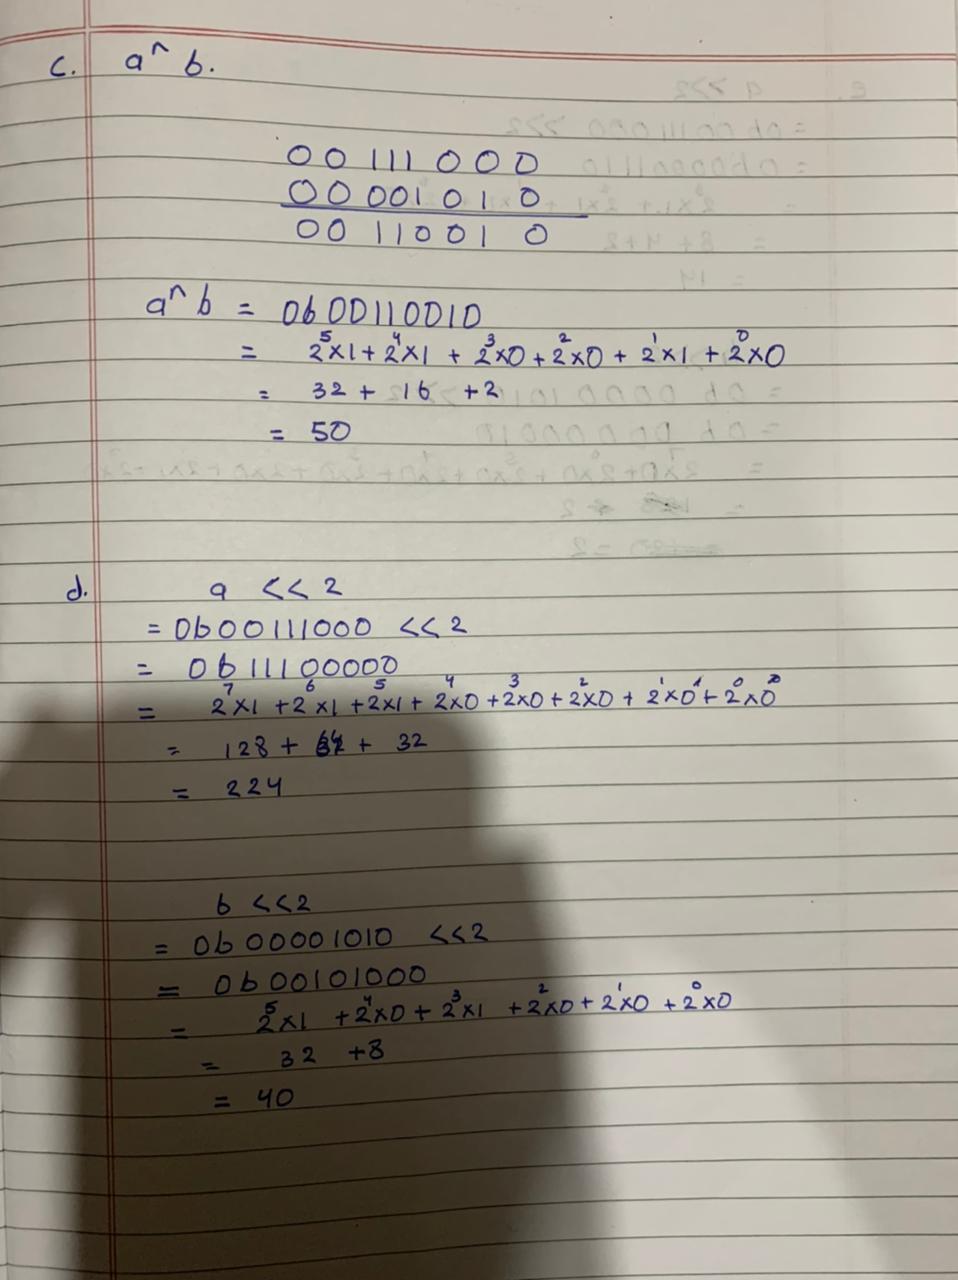 c. a^ b.
00111000
00001010
00110010
a^ b = 0b00110010
= 2⁵×1 + 2⁴×1 + 2³×0 + 2²×0 + 2¹×1 + 2⁰×0
= 32 + 16 +2
= 50
d. a << 2
= 0b00111000 << 2
= 0b11100000
= 2⁷×1 + 2⁶×1 + 2⁵×1 + 2⁴×0 + 2³×0 + 2²×0 + 2¹×0 + 2⁰×0
= 128 + 64 + 32
= 224
b <<2
= 0b00001010 <<2
= 0b00101000
= 2⁵×1 + 2⁴×0 + 2³×1 + 2²×0 + 2¹×0 + 2⁰×0
= 32 +8
= 40